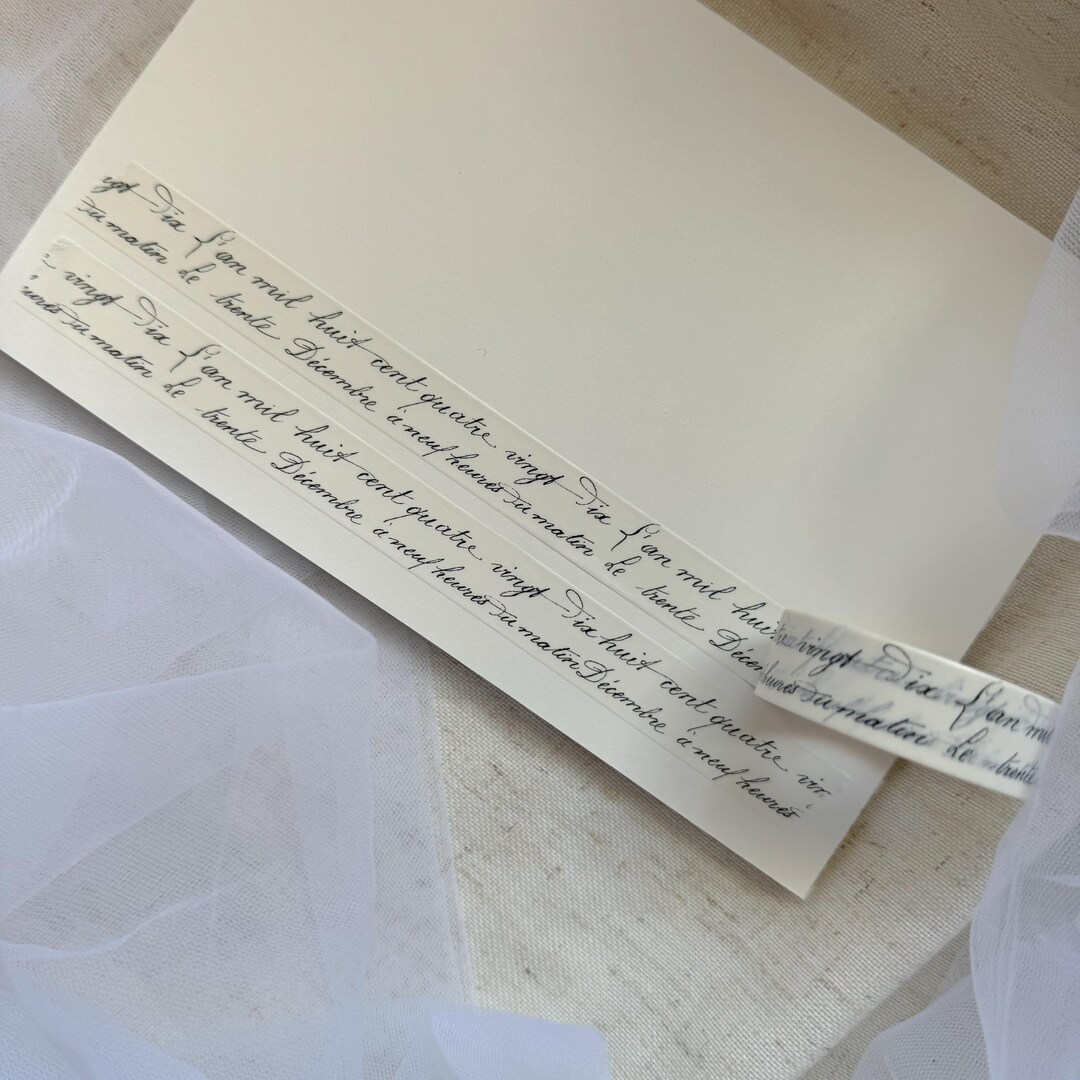 vingt Dix L'an mil huit cent quatre vingt Dix L'an mil huit
du matin Le trente Décembre à neuf heures du matin Le trente Décem
vingt Dix L'an mil huit cent quatre vingt Dix huit cent quatre vin
heures du matin Le trente Décembre à neuf heures du matin Décembre à neuf heures
vingt Dix L'an mil
heures du matin Le trente